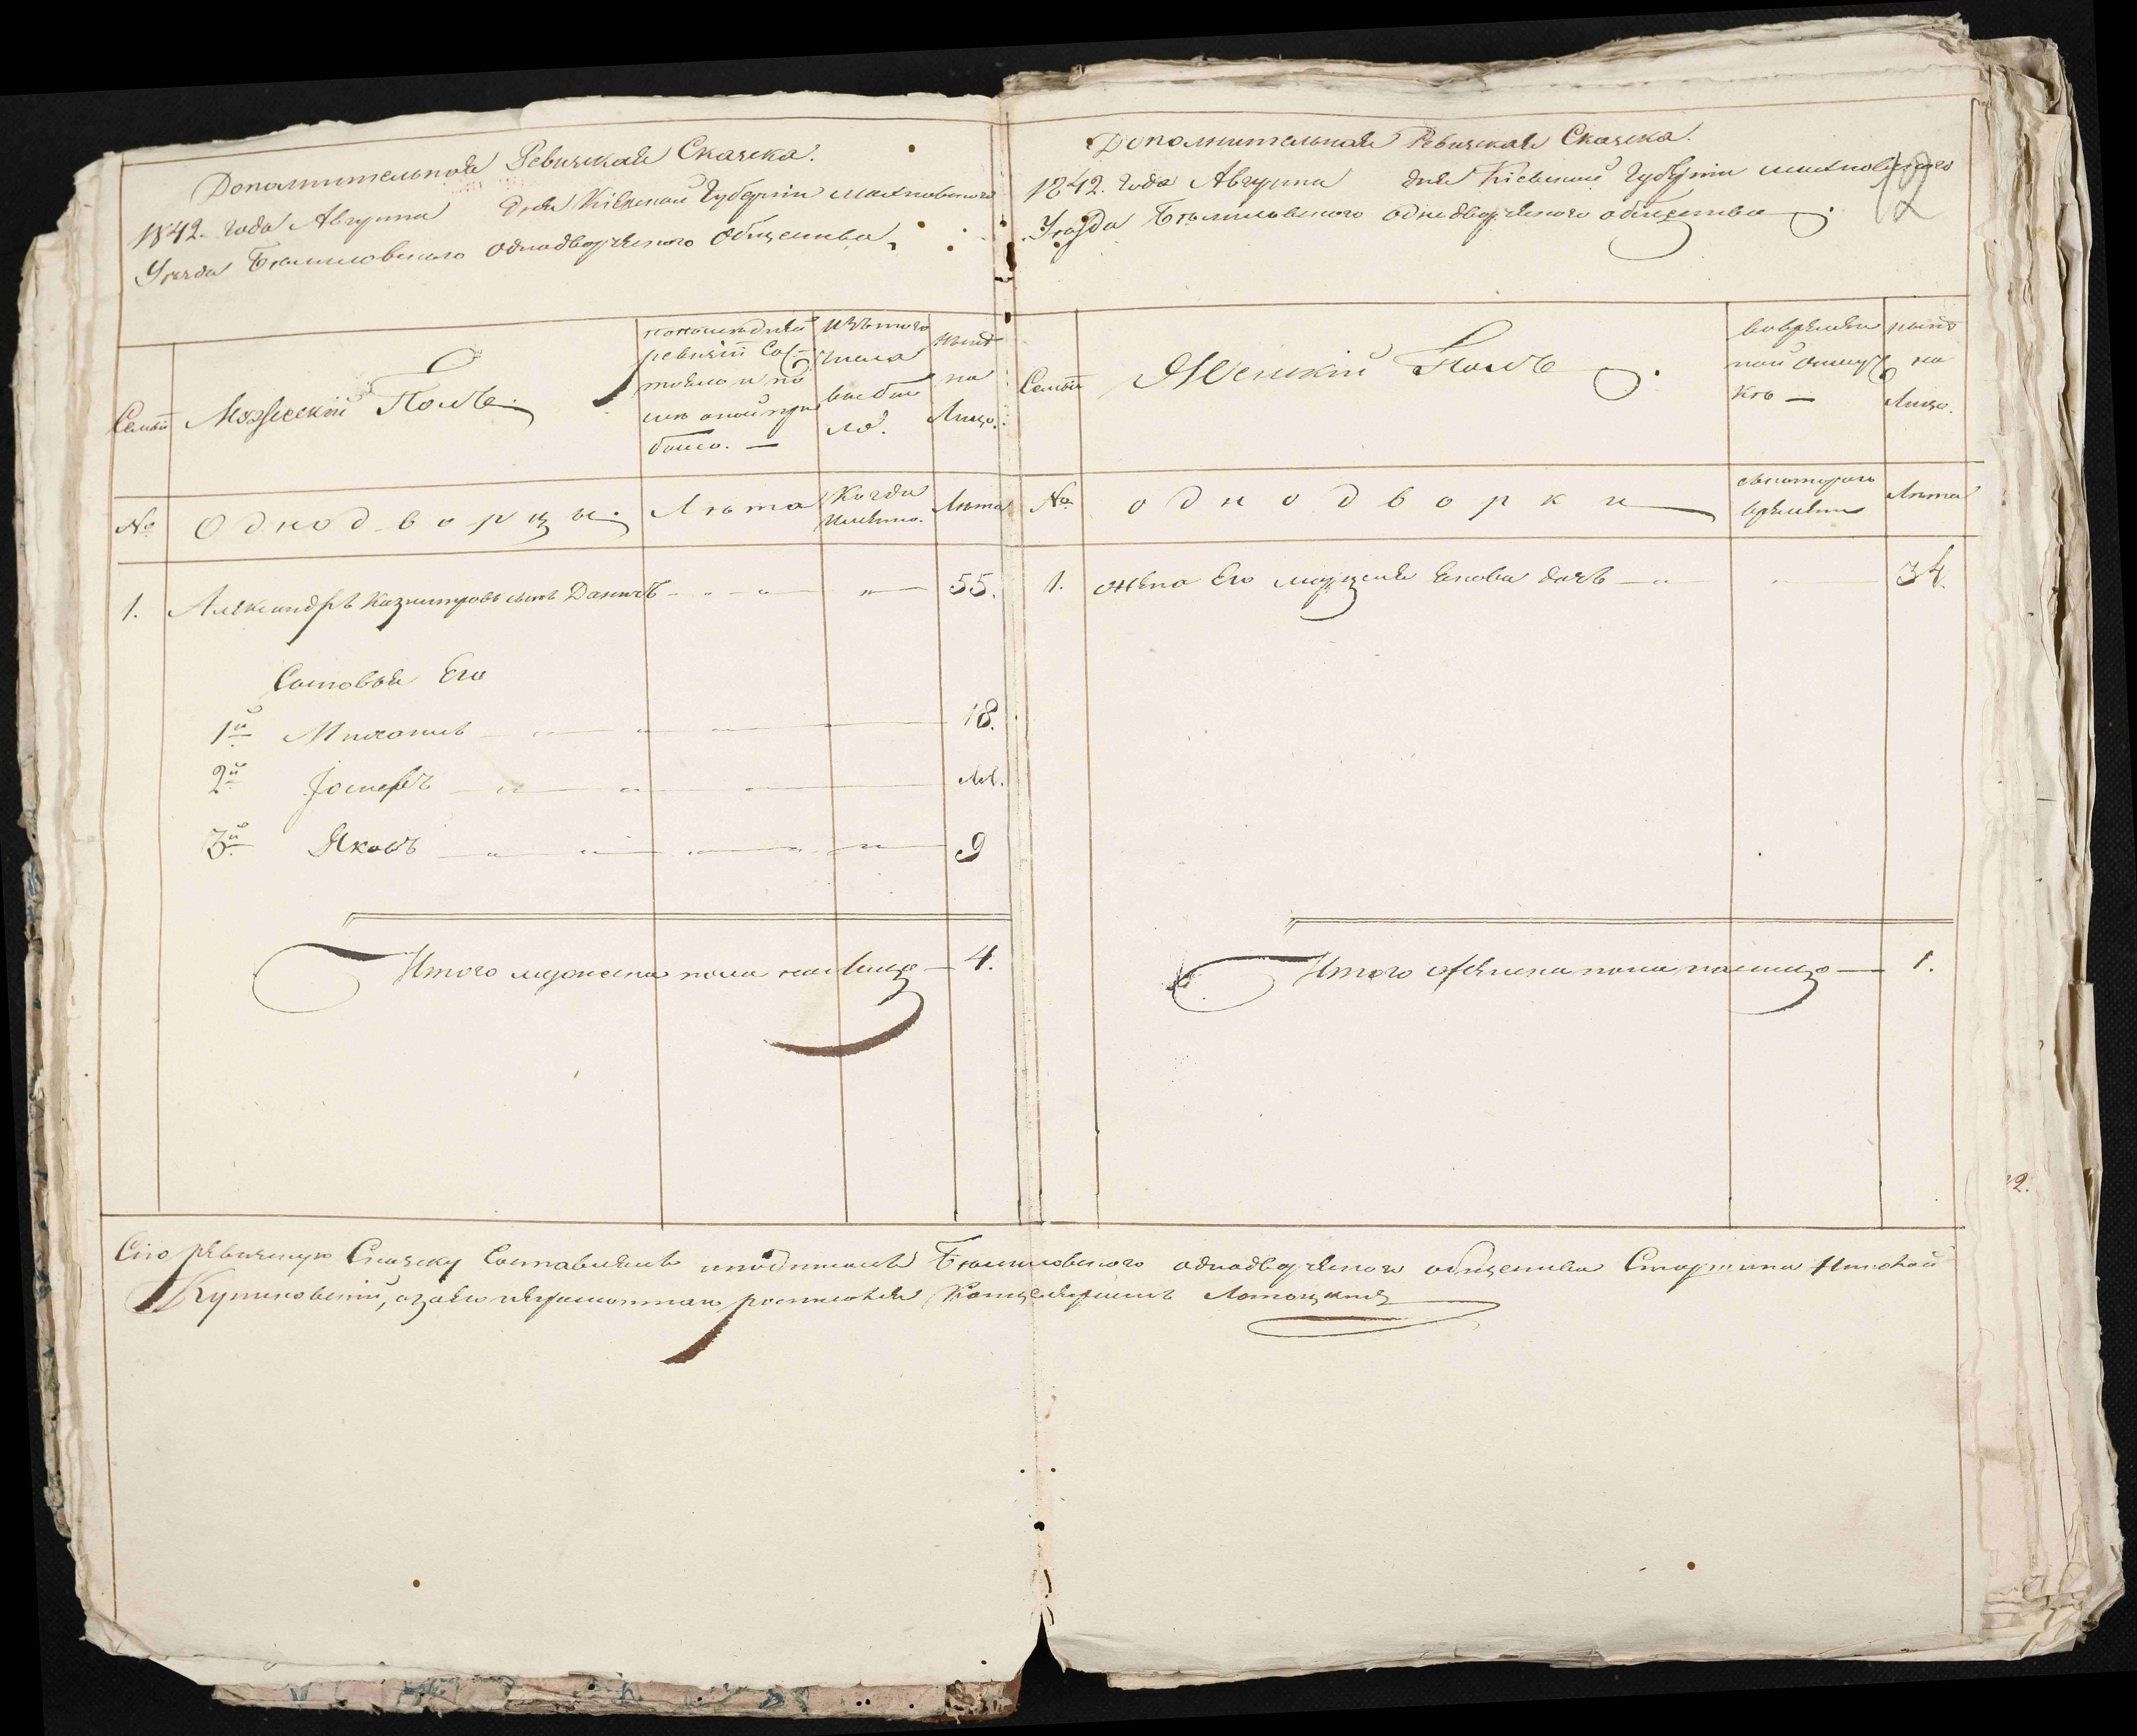 Дополнительная Ревизкая Сказска.
1842 года Августа дня Кіевской Губерніи Махновского
Уезда Бѣлиловского однодворческого общества,
Семьи
Мужеский Полъ.
по последней
ревизіи Сос-
тояло и по
слѣ оной при
было. —
изъ того
числа
выбы
ло.
нынѣ
на
Лицо.
№
Однодворцы.
Лѣта
Когда
именно.
Лѣта
1. Александръ Казимировъ сынъ 55.
Сыновья Его
1й Михаилъ 18.
2й Іосифъ
3й Яковъ 9
Итого мужеска пола на Лицо — 4.
Дополнительная Ревизкая Сказска.
12
1842 года Августа дня Кіевской Губерніи Махновского
Уезда Бѣлиловского однодворческого общества.
Семьи
Женскій Полъ.
во времен
ной отлуч
кѣ —
нынѣ
на
Лицо.
№
однодворки
съ которого
времени
Лѣта
1. жена Его дочь 34.
Итого женска пола на лицо — 1.
Сію ревизскую Сказку Составлялъ и подписалъ Бѣлиловского однодворческого общества Старшина
а за его неграмотного росписался Канцеляристъ